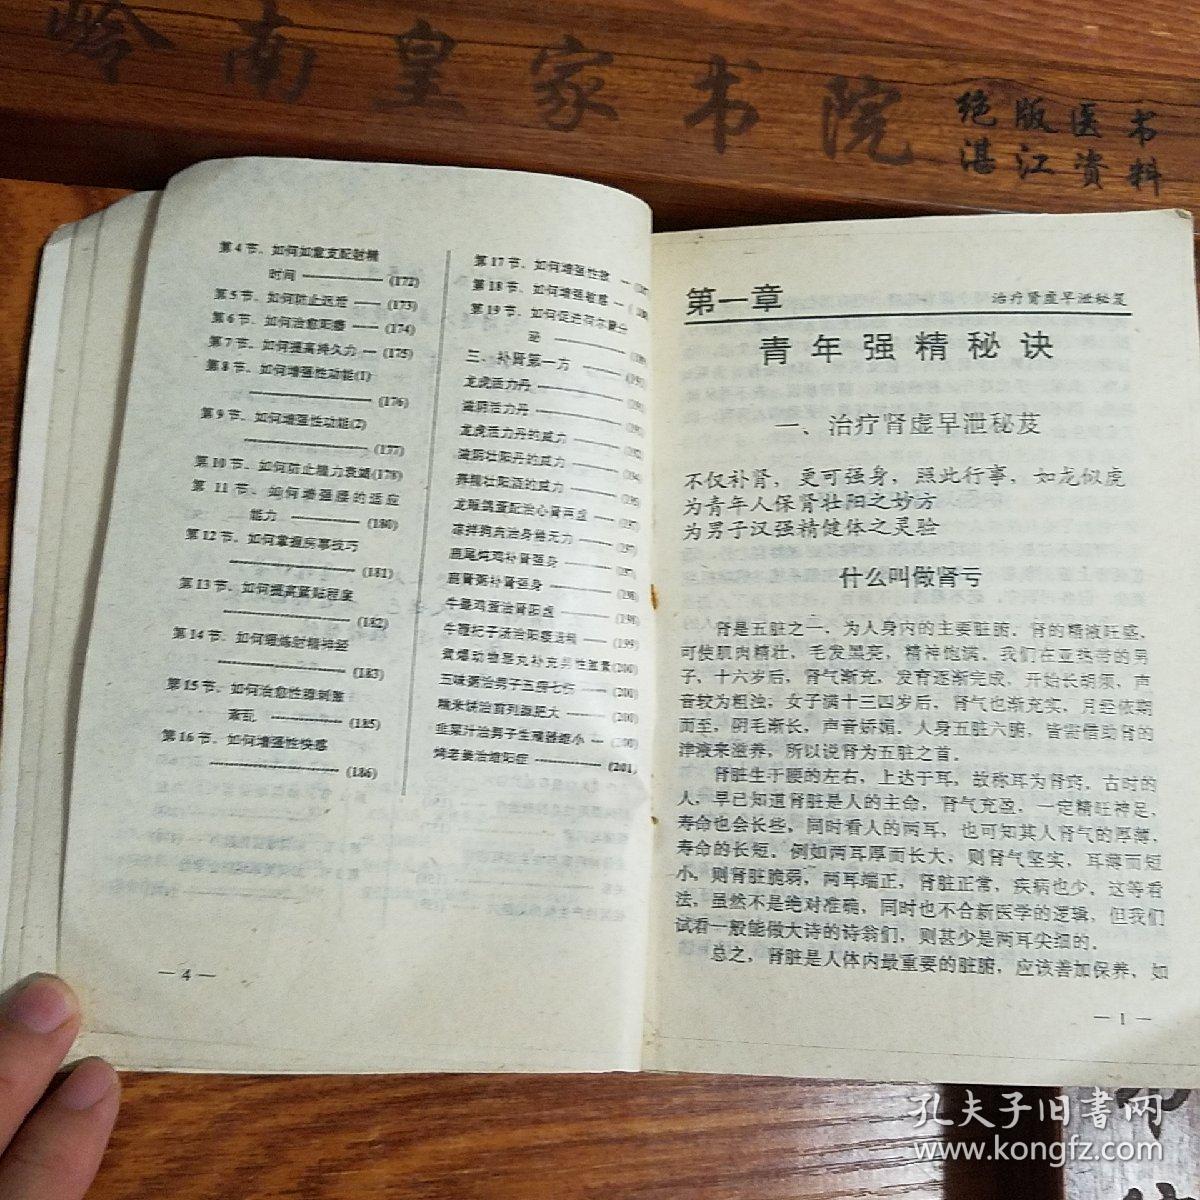 岭南皇家书院
绝版医书
湛江资料
第4节、如何如意支配射精
时间 (172)
第5节、如何防止迟泄 (173)
第6节、如何治愈阳痿 (174)
第7节、如何提高持久力 (175)
第8节、如何增强性功能(1)
(176)
第9节、如何增强性功能(2)
(177)
第10节、如何防止精力衰竭(178)
第11节、如何增强腰的适应
能力 (180)
第12节、如何掌握房事技巧
(181)
第13节、如何提高紧贴程度
(182)
第14节、如何锻炼射精神经
(183)
第15节、如何治愈性腺刺激
紊乱 (185)
第16节、如何增强性快感
(186)
第17节、如何增强性欲
第18节、如何增强敏感
第19节、如何促进荷尔蒙分
泌
三、补肾第一方
龙虎活力丹
滋阴活力丹
龙虎活力丹的威力
滋阴壮阳丹的威力 (194)
养精壮阳酒的威力 (195)
龙眼鸽蛋配治心肾两虚 (197)
凉拌狗肉治身倦无力 (197)
鹿尾炖鸡补肾强身 (197)
鹿肾粥补肾强身 (198)
牛鞭鸡蛋治肾阳虚 (198)
牛鞭杞子汤治阳痿遗精 (199)
黄爆动物睾丸补充男性激素(200)
五味粥治男子五痨七伤 (200)
糯米饼治前列腺肥大 (200)
韭菜汁治男子生殖器短小 (200)
烤老姜治缩阳症 (201)
— 4 —
第一章 治疗肾虚早泄秘笈
青年强精秘诀
一、治疗肾虚早泄秘芨
不仅补肾，更可强身，照此行事，如龙似虎
为青年人保肾壮阳之妙方
为男子汉强精健体之灵验
什么叫做肾亏
肾是五脏之一，为人身内的主要脏腑。肾的精液旺盛，
可使肌肉精壮，毛发黑亮，精神饱满。我们在亚热带的男
子，十六岁后，肾气渐充，发育逐渐完成，开始长胡须，声
音较为粗浊；女子满十三四岁后，肾气也渐充实，月经依期
而至，阴毛渐长，声音娇媚。人身五脏六腑，皆需借助肾的
津液来滋养，所以说肾为五脏之首。
肾脏生于腰的左右，上达于耳，故称耳为肾窍，古时的
人，早已知道肾脏是人的主命，肾气充盈，一定精旺神足，
寿命也会长些，同时看人的两耳，也可知其人肾气的厚薄，
寿命的长短。例如两耳厚而长大，则肾气坚实，耳薄而短
小，则肾脏脆弱，两耳端正，肾脏正常，疾病也少。这等看
法，虽然不是绝对准确，同时也不合新医学的逻辑，但我们
试看一般能做大诗的诗翁们，则甚少是两耳尖细的。
总之，肾脏是人体内最重要的脏腑，应该善加保养，如
— 1 —
孔夫子旧书网
www.kongfz.com